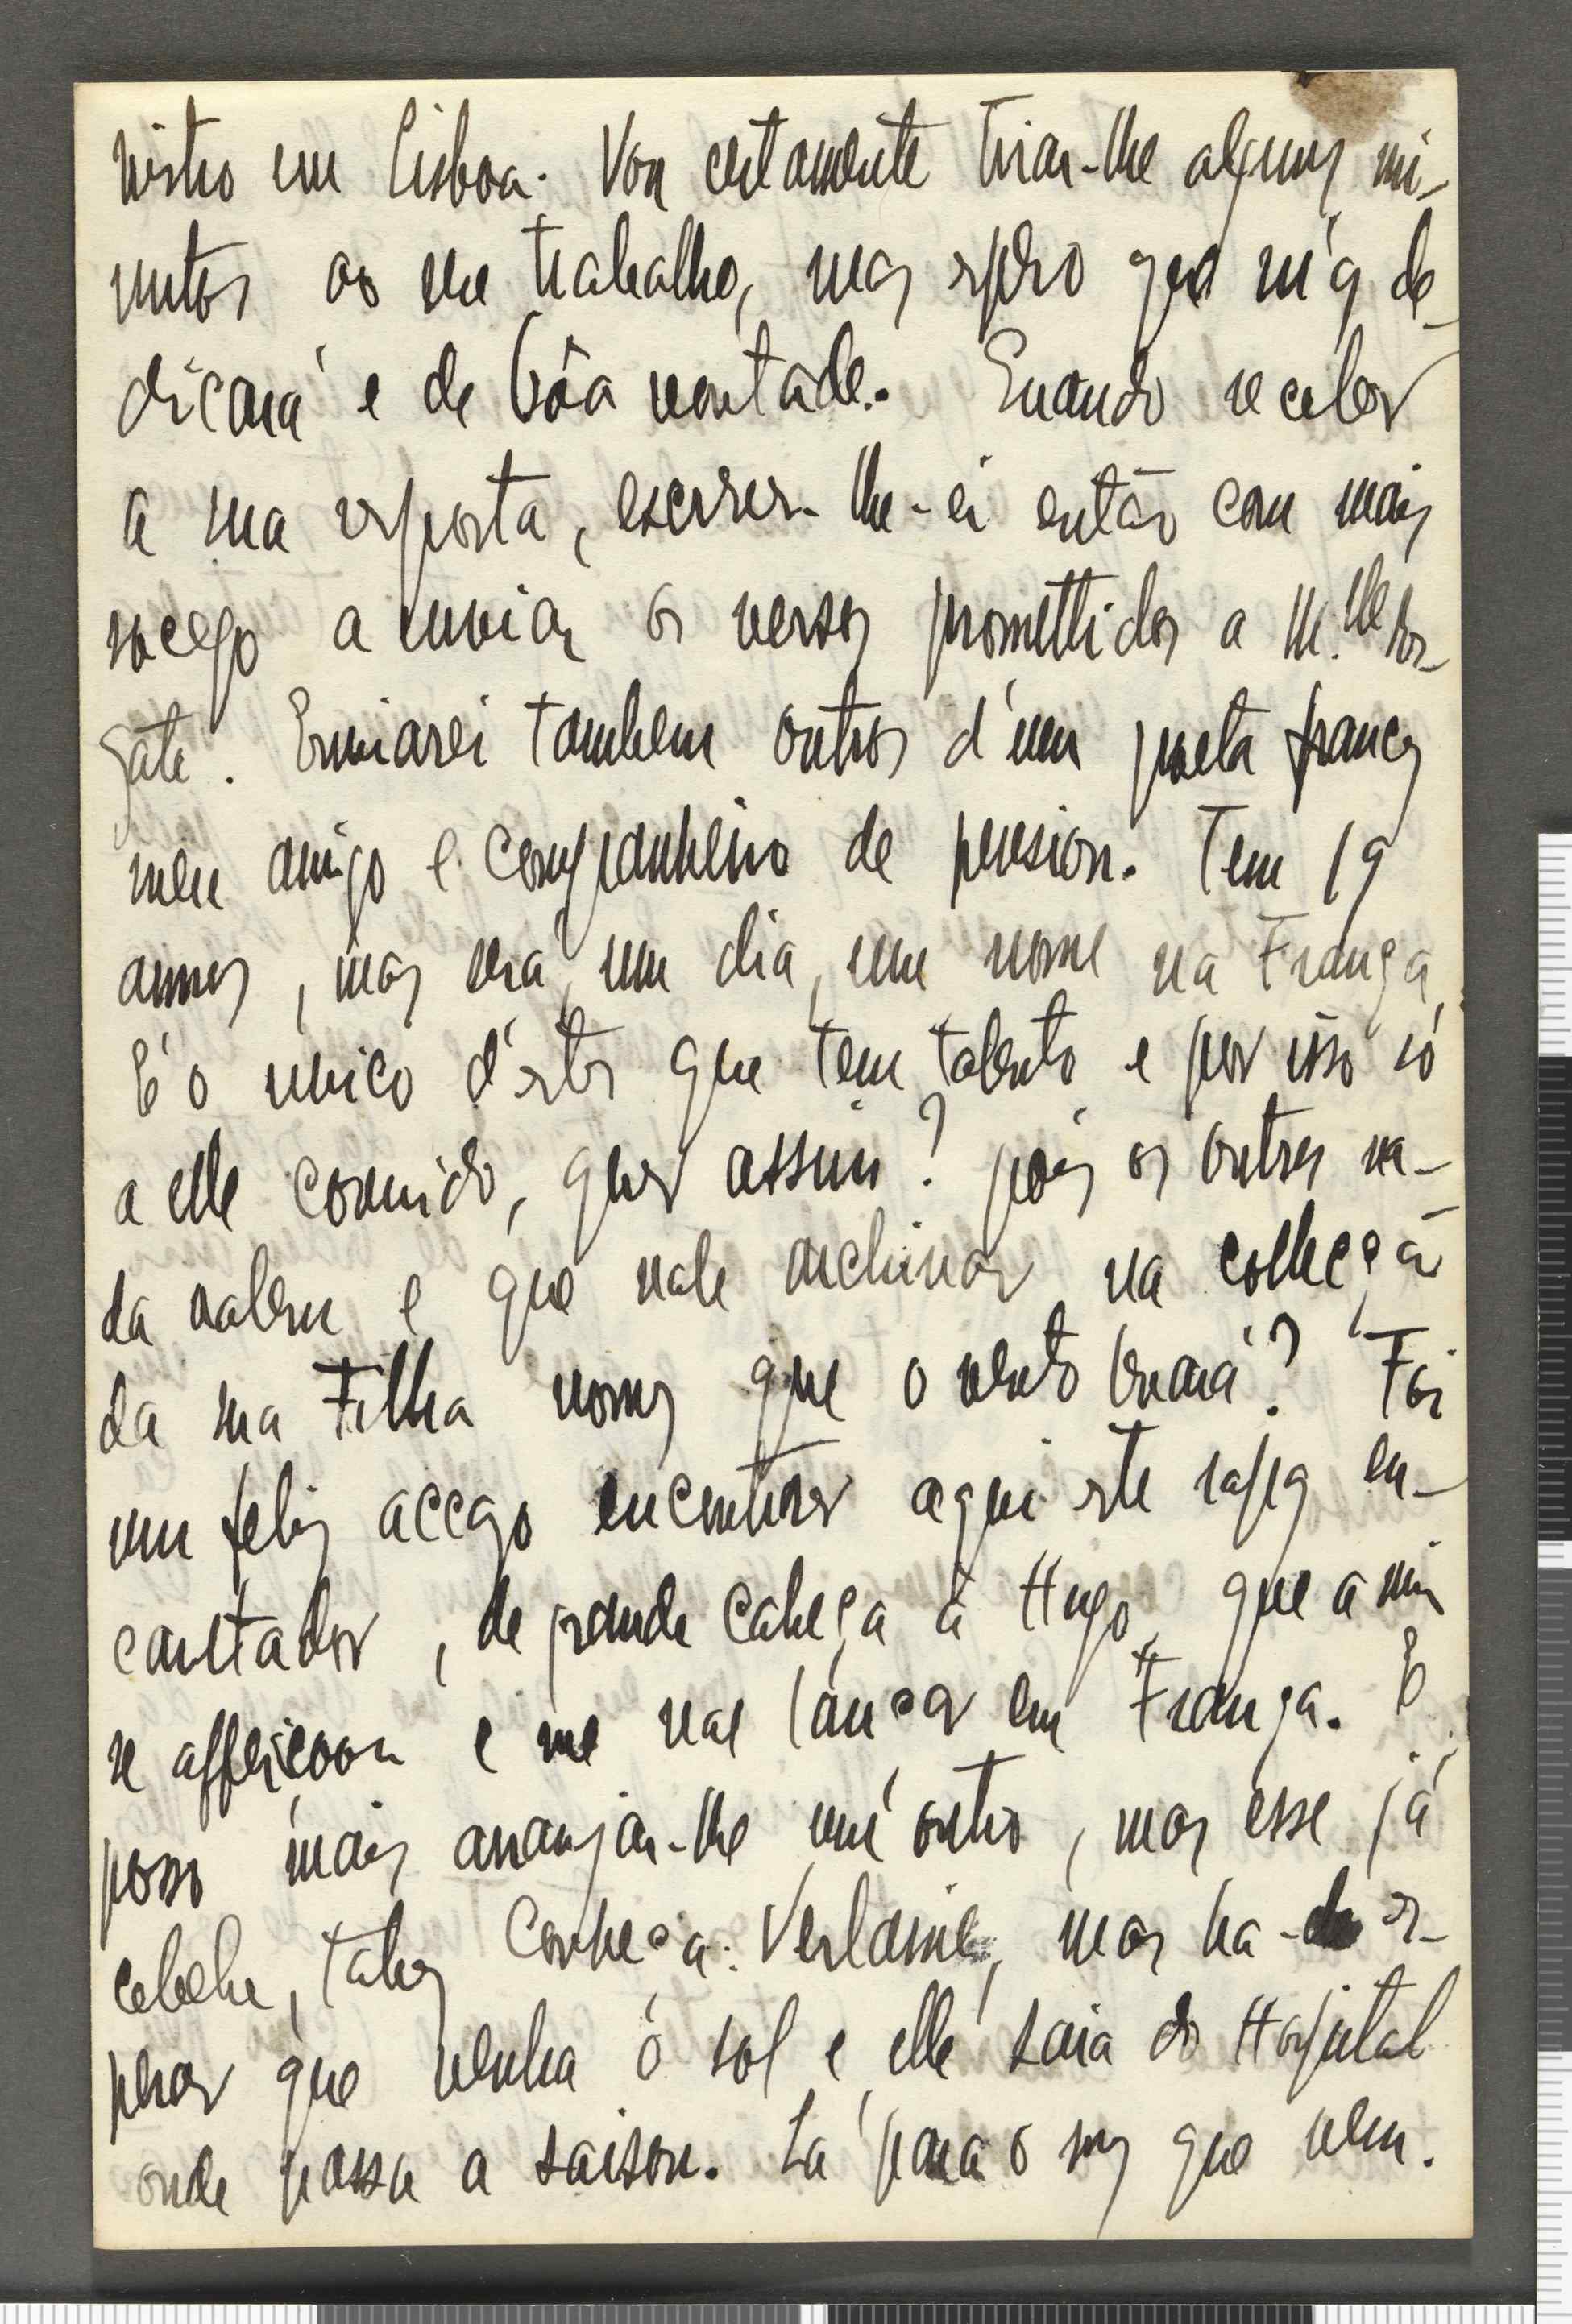 nistro em Lisboa. Vou certamente tirar-lhe alguns mi-
nutos ao seu trabalho, mas espero que m'os de-
dicará e de bôa vontade. Quando receber
a sua resposta, escrever-lhe-ei então com mais
socego a enviar os versos promettidos a M.lle
Enviarei tambem outros d'um poeta francez
meu amigo e companheiro de pension. Tem 19
annos, mas será, um dia, um nome na França,
É o unico d'estes que tem talento e por isso só
a elle convido, quer assim? pois os outros na-
da valem e que vale archivar na collecçã
da sua Filha nomes que o vento levará? Foi
um feliz accaso encontrar aqui este rapaz en-
cantador, de grande cabeça à Hugo, que a mim
se affeiçoou e me vae lançar em França. E
posso mais arranjar-lhe um outro, mas esse já
celebre, talvez conheça: Verlaine, mas ha-de es-
perar que venha o sol e elle saia do Hospital
onde passa a saison. Lá para o mez que vem.